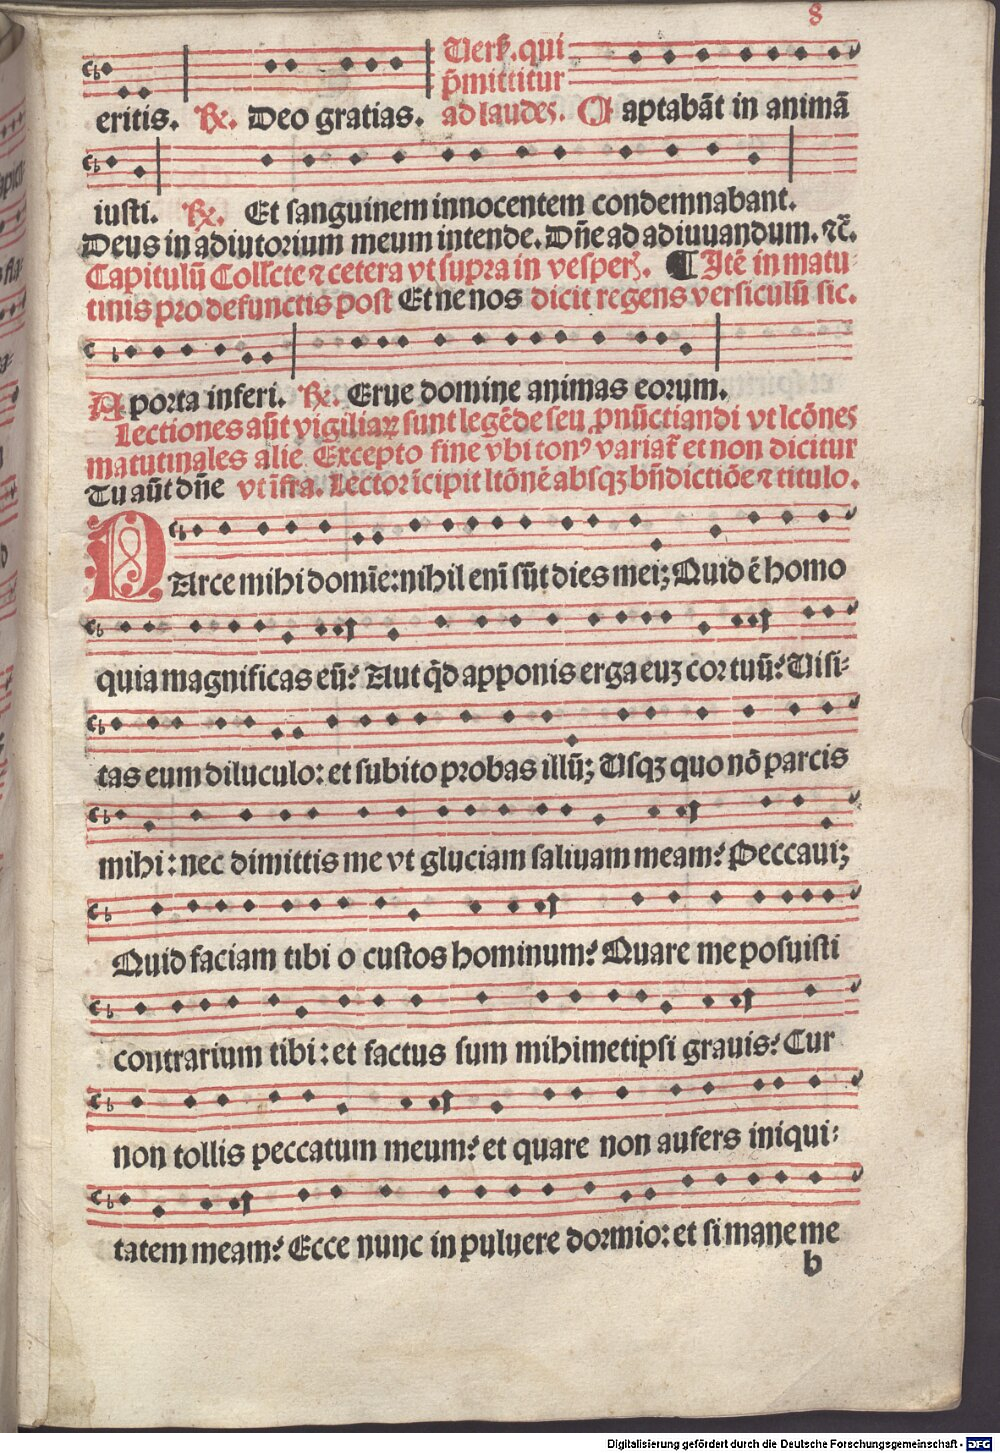 8
Versꝰ. qui
p̄mittitur
eritis. ℟. Deo gratias. ad laudes. C aptabāt in animā
iusti. ℟. Et sanguinem innocentem condemnabant.
Deus in adiutorium meum intende. Dn̄e ad adiuuandum. ⁊c̄.
Capitulū Collecte ⁊ cetera vt supra in vesperꝭ. ¶ Itē in matu⸗
tinis pro defunctis post Et ne nos dicit regens versiculū sic.
A porta inferi. ℟. Erue domine animas eorum.
Lectiones aūt vigiliaꝝ sunt legēde seu ꝓnūctiandi vt lcōnes
matutinales alie Excepto fine vbi tonꝰ variat᷑ et non dicitur
Tu aūt dn̄e vt īfra. Lector īcipit lcōnē absqꝫ bn̄dictiōe ⁊ titulo.
PArce mihi domīe: nihil eni sūt dies mei; Quid ē homo
quia magnificas eū? Aut q̄d apponis erga euꝫ cor tuū? Visi⸗
tas eum diluculo: et subito probas illū; Vsqꝫ quo nō parcis
mihi: nec dimittis me vt gluciam saliuam meam? Peccaui;
Quid faciam tibi o custos hominum? Quare me posuisti
contrarium tibi: et factus sum mihimetipsi grauis? Cur
non tollis peccatum meum? et quare non aufers iniqui⸗
tatem meam? Ecce nunc in puluere dormio: et si mane me
b
Digitalisierung gefördert durch die Deutsche Forschungsgemeinschaft - DFG